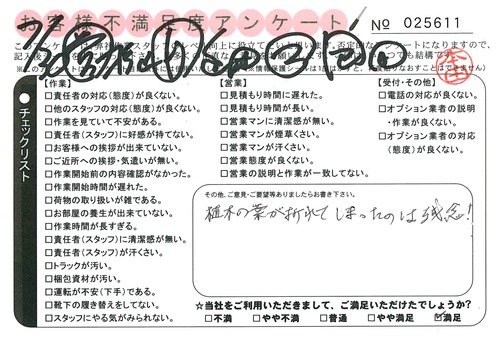 お客様不満足度アンケート
№ 025611
チェックリスト
【作業】
□責任者の対応(態度)が良くない。
□他のスタッフの対応(態度)が良くない。
□作業を見ていて不安がある。
□責任者(スタッフ)に好感が持てない。
□お客様への挨拶が出来ていない。
□ご近所への挨拶・気遣いが無い。
□作業開始前の内容確認がなかった。
□作業開始時間が遅れた。
□荷物の取り扱いが雑である。
□お部屋の養生が出来ていない。
□作業時間が長すぎる。
□責任者(スタッフ)に清潔感が無い。
□責任者(スタッフ)が汗くさい。
□トラックが汚い。
□梱包資材が汚い。
□運転が不安(下手)である。
□靴下の履き替えをしてない。
□スタッフにやる気がみられない。
【営業】
□見積もり時間に遅れた。
□見積もり時間が長い。
□営業マンに清潔感が無い。
□営業マンが煙草くさい。
□営業マンが汗くさい。
□営業態度が良くない。
□営業の説明と作業が一致してない。
【受付・その他】
□電話の対応が良くない。
□オプション業者の説明
・作業が良くない。
□オプション業者の対応
(態度)が良くない。
その他、ご意見・ご要望等ありましたらお書き下さい。
植木の葉が折れてしまったのは残念!
☆当社をご利用いただきまして、ご満足いただけたでしょうか?
□不満 □やや不満 □普通 □やや満足 ☑満足